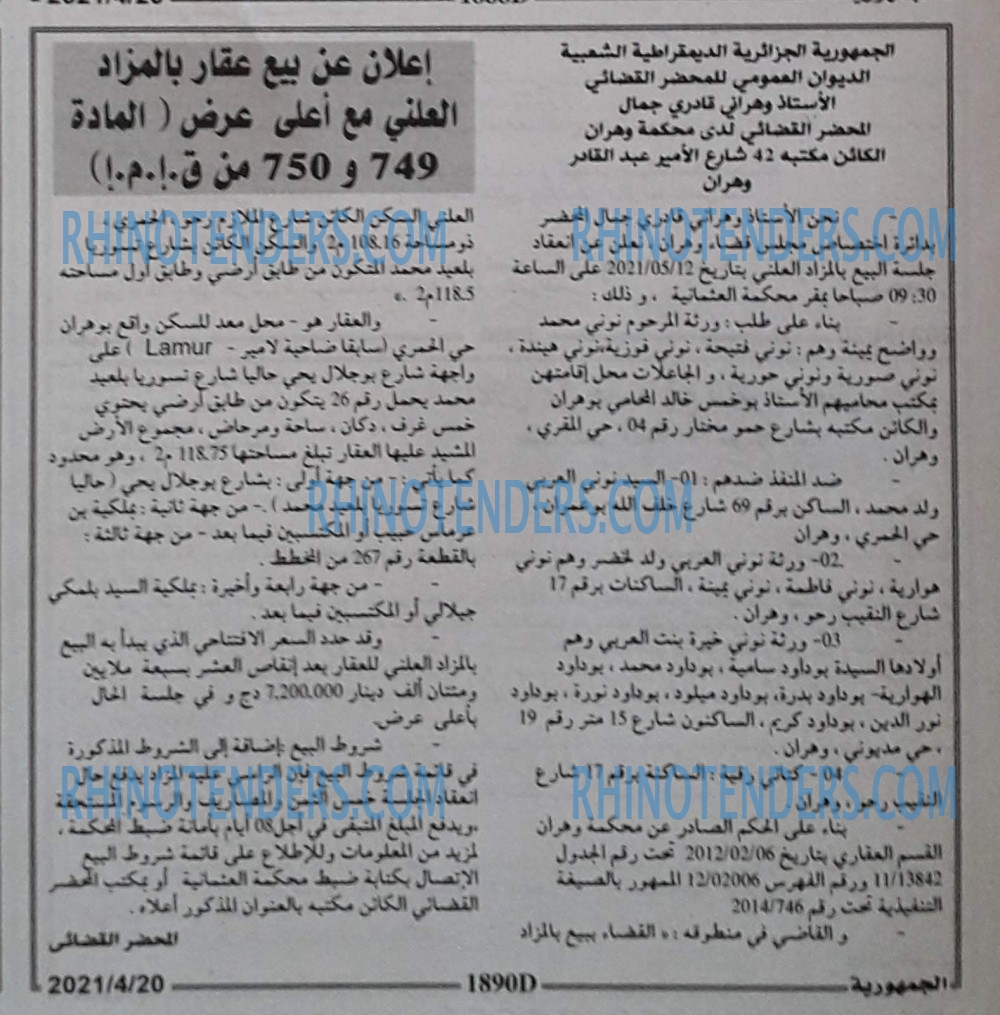 الجمهورية الجزائرية الديمقراطية الشعبية
الديوان العمومي للمحضر القضائي
الأستاذ وهراني قادري جمال
المحضر القضائي لدى محكمة وهران
الكائن مكتبه 42 شارع الأمير عبد القادر
وهران
- نحن الأستاذ وهراني قادري جمال المحضر
بدائرة إختصاص مجلس قضاء وهران، نعلن عن انعقاد
جلسة البيع بالمزاد العلني بتاريخ 2021/05/12 على الساعة
09:30 صباحا بمقر محكمة العثمانية ، و ذلك :
- بناء على طلب : ورثة المرحوم نوني محمد
وواضح يمينة وهم : نوني فتيحة ، نوني فوزية،نوني هيندة ،
نوني صورية ونوني حورية ، و الجاعلات محل إقامتهن
بمكتب محاميهم الأستاذ بوخمس خالد المحامي بوهران
والكائن مكتبه بشارع حمو مختار رقم 04 ، حي المقري ،
وهران .
- ضد المنفذ ضدهم : 01- السيد نوني العربي
ولد محمد ، الساكن برقم 69 شارع خلف الله بوعمران ،
حي الحمري ، وهران
- 02- ورثة نوني العربي ولد لخضر وهم نوني
هوارية ، نوني فاطمة ، نوني يمينة ، الساكنات برقم 17
شارع النقيب رحو ، وهران .
- 03- ورثة نوني خيرة بنت العربي وهم
أولادها السيدة بوداود سامية ، بوداود محمد ، بوداود
الهوارية- بوداود بدرة، بوداود ميلود ، بوداود نورة ، بوداود
نور الدين ، بوداود كريم ، الساكنون شارع 15 متر رقم 19
، حي مديوني ، وهران .
- 04- كتاني رقية : الساكنة برقم 17 شارع
النقيب رحو ، وهران
- بناء على الحكم الصادر عن محكمة وهران
القسم العقاري بتاريخ 2012/02/06 تحت رقم الجدول
11/13842 ورقم الفهرس 12/02006 الممهور بالصيغة
التنفيذية تحت رقم 2014/746
- و القاضي في منطوقه : « القضاء ببيع بالمزاد
إعلان عن بيع عقار بالمزاد
العلني مع أعلى عرض ( المادة
749 و 750 من ق.إ.م.إ)
العلني السكن الكائن شارع الملازم رحو، الحمري ،
ذو مساحة 108.16م2 والسكن الكائن بشارع تسوريا
بلعيد محمد المتكون من طابق أرضي وطابق أول مساحته
118.5م2 .»
- والعقار هو - محل معد للسكن واقع بوهران
حي الحمري (سابقا ضاحية لامير - Lamur ) على
واجهة شارع بوجلال يحي حاليا شارع تسوريا بلعيد
محمد يحمل رقم 26 يتكون من طابق أرضي يحتوي
خمس غرف ، دكان ، ساحة ومرحاض ، مجموع الأرض
المشيد عليها العقار تبلغ مساحتها 118.75 م2 ، وهو محدود
كما يأتي : - من جهة أولى : بشارع بوجلال يحي ( حاليا
شارع تسوريا بلعيد محمد ) .- من جهة ثانية : بملكية بن
عرماس حبيب أو المكتسبين فيما بعد - من جهة ثالثة :
بالقطعة رقم 267 من المخطط .
- - من جهة رابعة وأخيرة : بملكية السيد بلمكي
جيلالي أو المكتسبين فيما بعد .
- وقد حدد السعر الافتتاحي الذي يبدأ به البيع
بالمزاد العلني للعقار بعد إنقاص العشر بسبعة ملايين
ومئتان ألف دينار 7.200.000 دج و في جلسة الحال
بأعلى عرض.
- شروط البيع :إضافة إلى الشروط المذكورة
في قائمة شروط البيع فإن الراسي عليه المزاد يدفع حال
انعقاد الجلسة خمس الثمن والمصاريف والرسوم المستحقة
،ويدفع المبلغ المتبقى في اجل08 أيام بأمانة ضبط المحكمة ،
لمزيد من المعلومات وللإطلاع على قائمة شروط البيع
الإتصال بكتابة ضبط محكمة العثمانية أو بمكتب المحضر
القضائي الكائن مكتبه بالعنوان المذكور أعلاه .
المحضر القضائى
الجمهورية 1890D 2021/4/20
RHINOTENDERS.COM
RHINOTENDERS.COM
RHINOTENDERS.COM
RHINOTENDERS.COM
RHINOTENDERS.COM